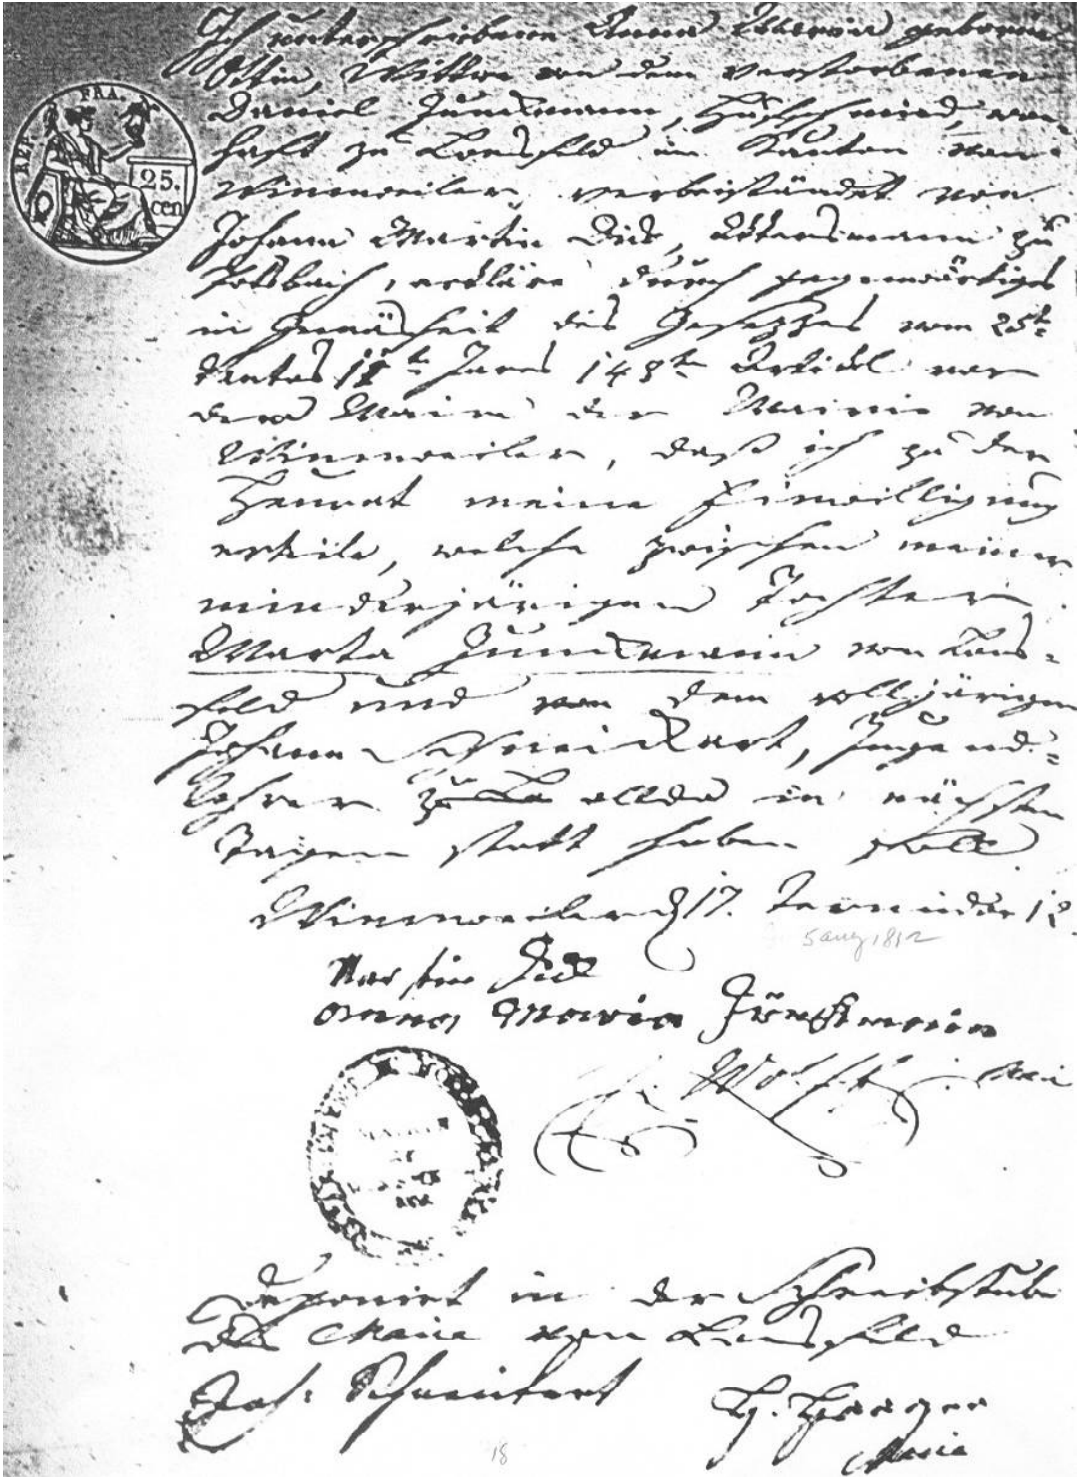 Ich unterschriebene Anna Maria geborene
Ottin, Wittwe von dem verstorbenen
Daniel Junckmann, Hufschmied, won-
haft zu Lonsfeld im Kanton von
Winnweiler, verbeiständet von
Johann Martin Dick, Ackersmann zu
Potzbach, erkläre durch gegenwärtiges
in Gemäsheit des Gesezzes vom 25ten
Ventos 11ten Jares 148ten Artickl vor
dem Maire der Mairie von
Winnweiler, daß ich zu der
Heurat meine Einwilligung
erteile, welche zwischen meiner
minderjärigen Tochter
Marta Junckmann von Lons-
feld und von dem volljärigen
Johann Schweickart, Jugend-
lehrer zu allda in nächsten
Tagen statt haben solle
Winnweiler d 17. Termidor 12
5 aug 1812
Martin Dick
Anna Maria
Maire
REP. FRA.
25.
cen
Deponirt in der Schreibstube
des Maire von Lonsfeld
Joh: Schweickart
H. Haager
Maire
18